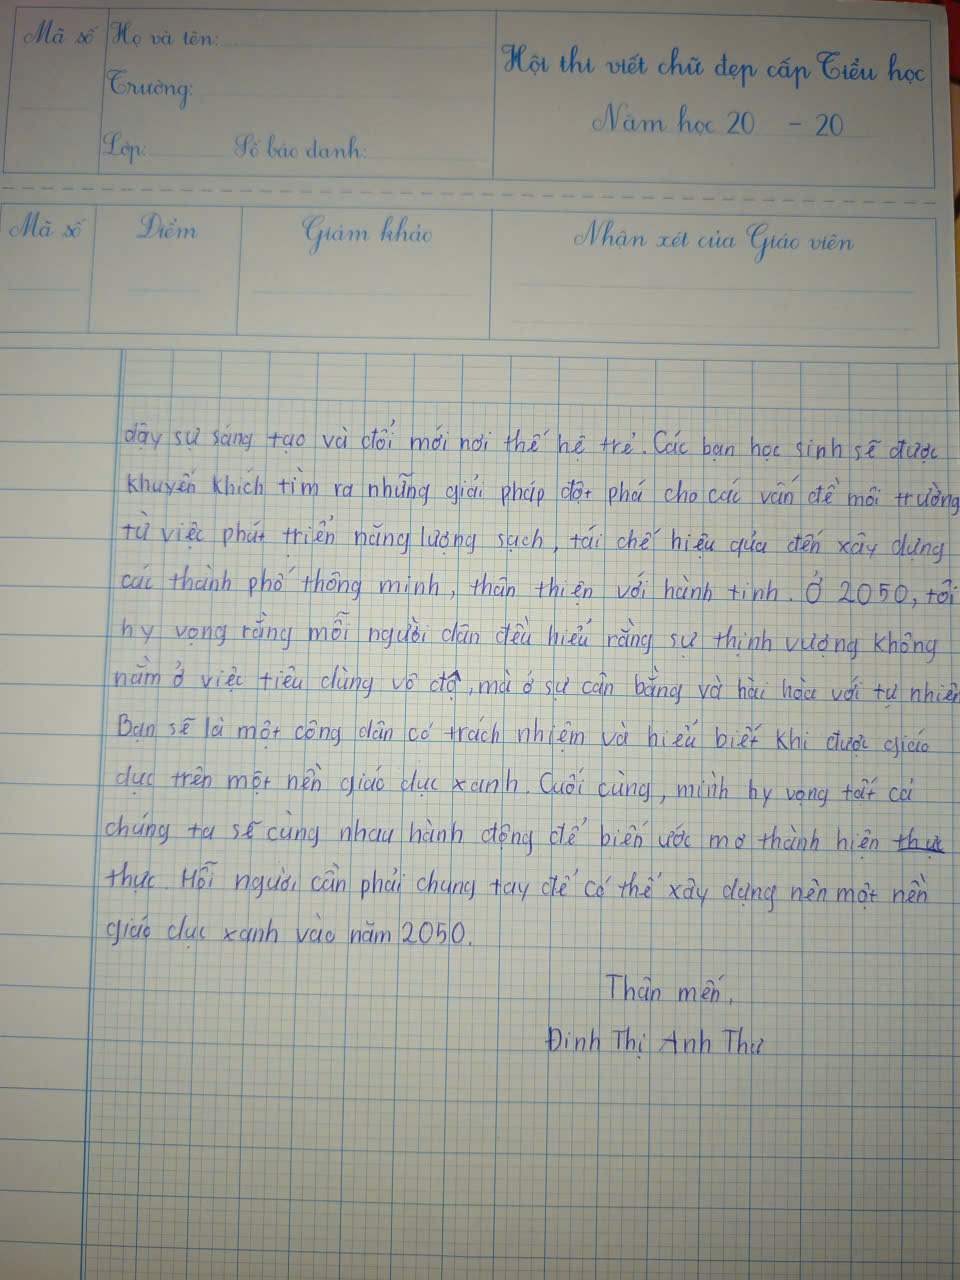 Mã số
Họ và tên:
Trường:
Lớp: Số báo danh:
Hội thi viết chữ đẹp cấp Tiểu học
Năm học 20 - 20
Mã số
Điểm
Giám khảo
Nhận xét của Giáo viên
dậy sự sáng tạo và đổi mới nơi thế hệ trẻ. Các bạn học sinh sẽ được
khuyến khích tìm ra những giải pháp đột phá cho các vấn đề môi trường
từ việc phát triển năng lượng sạch, tái chế hiệu quả đến xây dựng
các thành phố thông minh, thân thiện với hành tinh. Ở 2050, tôi
hy vọng rằng mỗi người dân đều hiểu rằng sự thịnh vượng không
nằm ở việc tiêu dùng vô độ, mà ở sự cân bằng và hài hòa với tự nhiên
Bạn sẽ là một công dân có trách nhiệm và hiểu biết khi được giáo
dục trên một nền giáo dục xanh. Cuối cùng, mình hy vọng tất cả
chúng ta sẽ cùng nhau hành động để biến ước mơ thành hiện thực
thực. Mỗi người cần phải chung tay để có thể xây dựng nên một nền
giáo dục xanh vào năm 2050.
Thân mến,
Đinh Thị Anh Thư